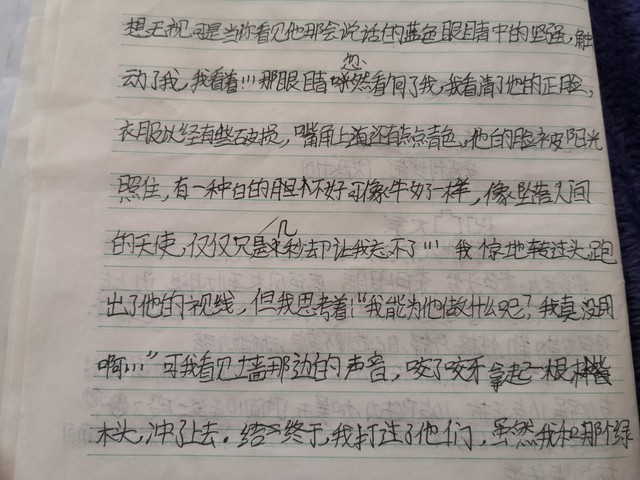 想无视可是当你看见他那会说话的蓝色眼睛中的坚强,触
动了我,我看着!!!那眼睛忽然看向了我,我看清了他的正脸,
衣服以经有些破损,嘴角上还有点点青色,他的脸被阳光
照住,有一种白的不好像牛奶了一样,像坠落人间
的天使,仅仅只是几秒却让我忘不了!!!我惊地转过头跑
出了他的视线,但我思考着!"我能为他做什么呢?我真没用
啊..."可我看见墙那边的声音,咬了咬牙拿起一根
木头,冲了上去。结终于,我打过了他们,虽然我和那个绿